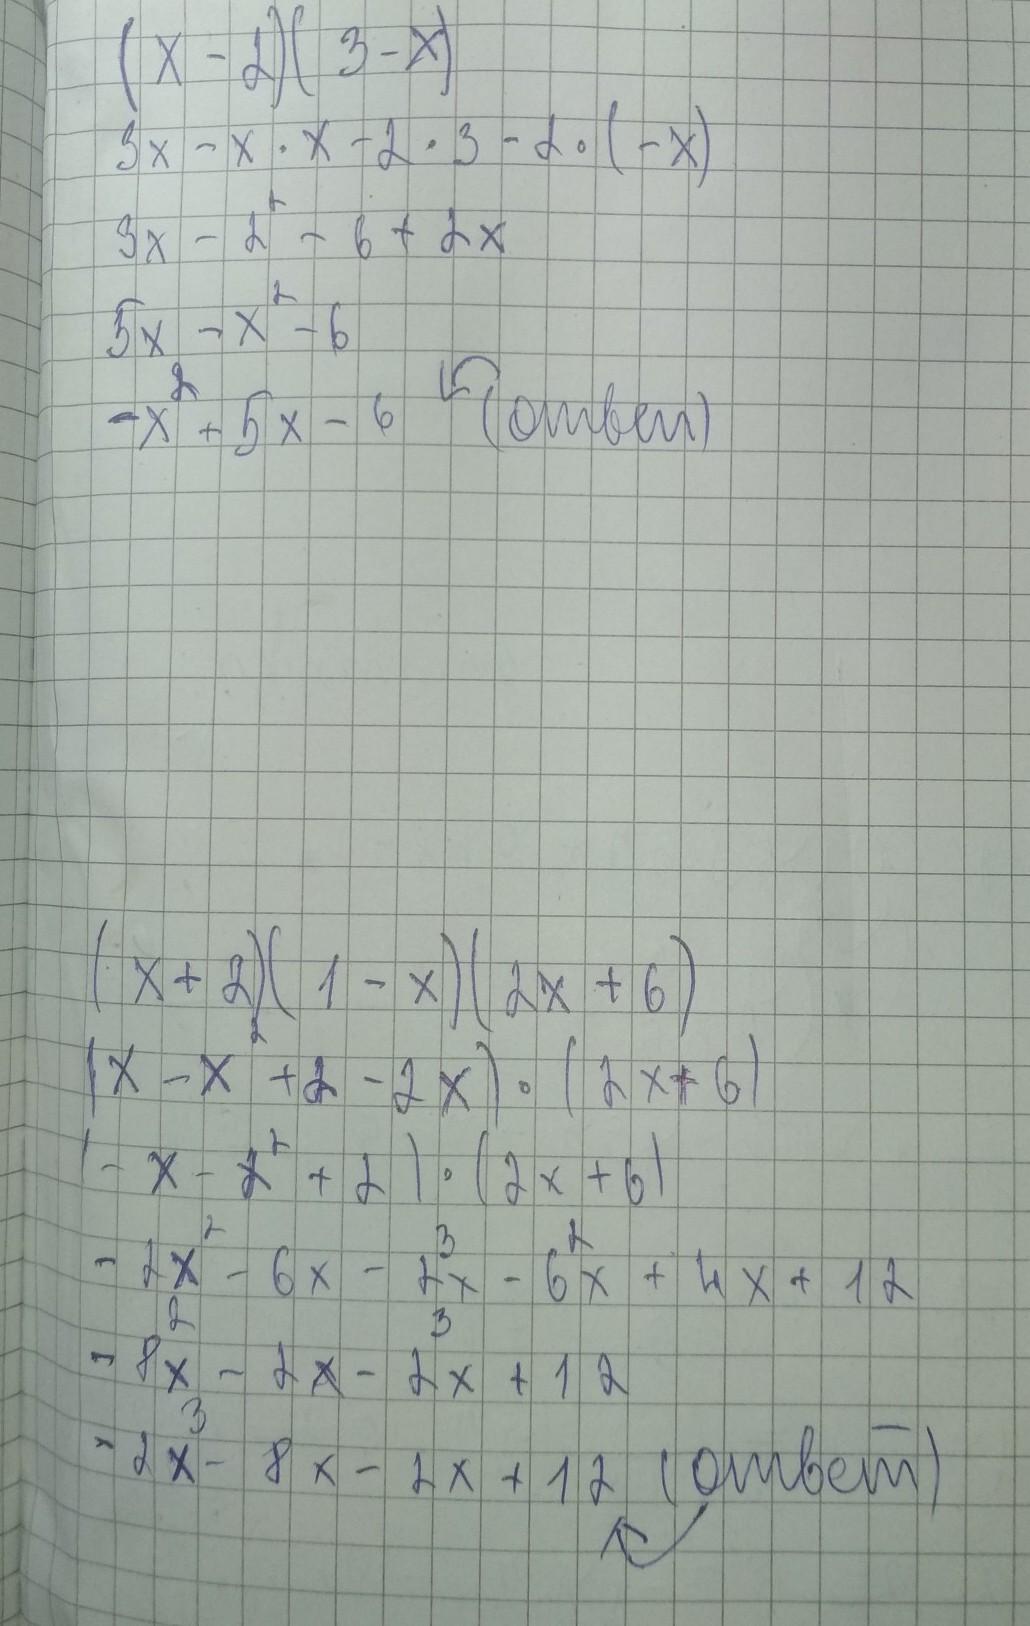 (x - 2)(3 - x)
3x - x · x - 2 · 3 - 2 · (-x)
3x - 2² - 6 + 2x
5x - x² - 6
-x² + 5x - 6 (ответ)
(x + 2)(1 - x)(2x + 6)
(x - x² + 2 - 2x) · (2x + 6)
(- x - x² + 2) · (2x + 6)
- 2x² - 6x - 2x³ - 6x² + 4x + 12
- 8x² - 2x - 2x³ + 12
- 2x³ - 8x - 2x + 12 (ответ)